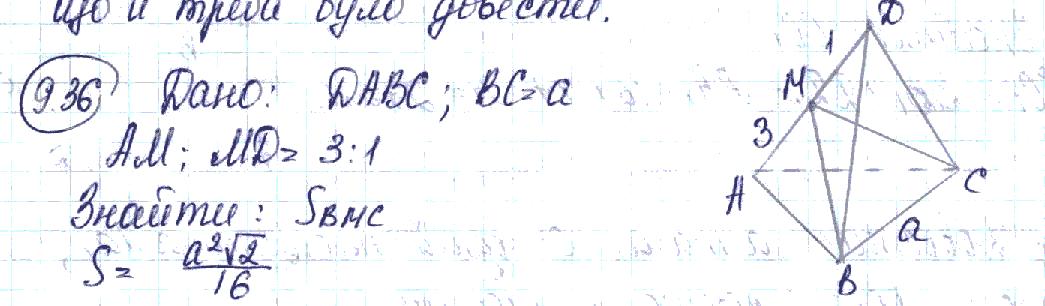 що й треба було довести.
936 Дано: DABC; BC=a
AM; MD= 3:1
Знайти: SBMC
S= a²√2/16
D
1
M
3
A
C
a
B